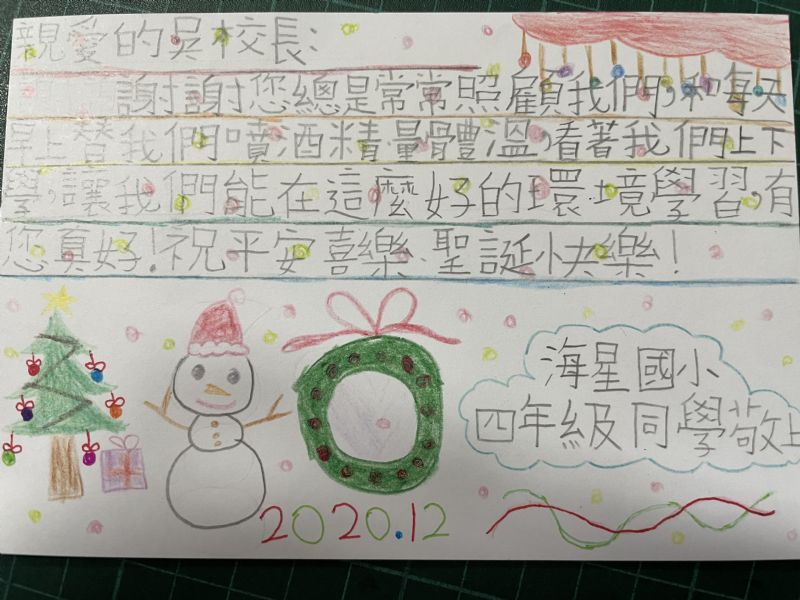 親愛的吳校長:
謝謝您總是常常照顧我們,和每天
早上替我們噴酒精、量體溫,看著我們上下
學,讓我們能在這麼好的環境學習,有
您真好!祝平安喜樂、聖誕快樂!
海星國小
四年級同學敬上
2020.12